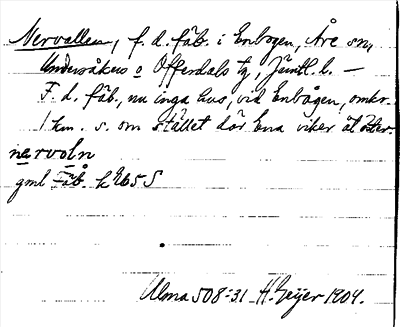 Nervallen, f. d. fäb. i Enbogen, Åre sn,
Undersåkers o Offerdals tg, Jämtl. l. —
F. d. fäb., nu inga hus, vid Enbågen, omkr.
1 km. s. om stället där Ena viker åt öster.
nervoln
gml Fäb. k
Alma 508:31 H. Geijer 1904.